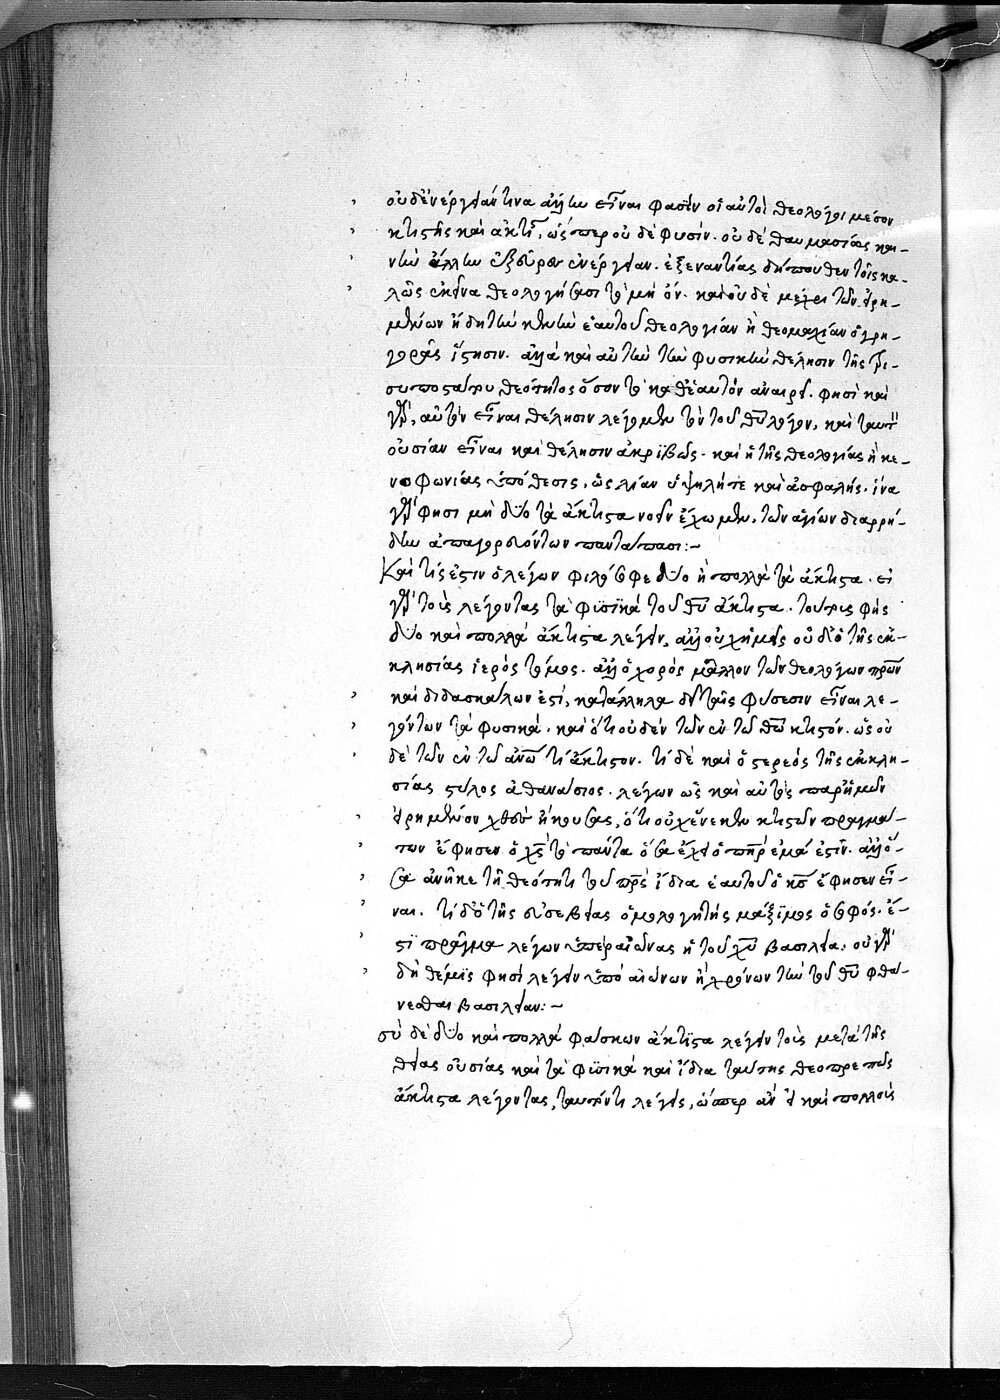 οὐδ' ἐνέργειάν τινα αὐτῶν εἶναι φασὶν οἱ αὐτοὶ θεολόγοι μέσον
κτιστῆς καὶ ἀκτί, ὥσπερ οὐδὲ φύσιν. οὐ δὲ θαυμασίας και-
νὴν ἄλλην ἐξεῦρον ἐνέργειαν. ἐξεναντίας δήπουθεν τοῖς κα-
λῶς ἐκεῖνα θεολογήσασι τὸ μὴ ὄν. καὶ οὐ δὲ μέχρι τῶν εἰρη-
μένων ἤδη τὴν κτην ἑαυτοῦ θεολογίαν ἢ θεομαχίαν ὁ γρη-
γορᾶς ἵστησιν. ἀλλὰ καὶ αὐτὴν τὴν φυσικὴν θέλησιν τῆς τρι-
συποστάτου θεότητος ὅσον τὸ καθ' ἑαυτὸν ἀναιρεῖ. φησὶ καὶ
γὰρ, αὐτὸν εἶναι θέλησιν λέγομεν τὸν τοῦ θυ λόγον, καὶ ταυτ
οὐσίαν εἶναι καὶ θέλησιν ἀκριβῶς. καὶ ἡ τῆς θεολογίας ἢ κε-
νοφωνίας ὑπόθεσις, ὡς λίαν ὑψηλή τε καὶ ἀσφαλής. ἵνα
γὰρ φησι μὴ δύο τὰ ἄκτιστα νοεῖν ἔχωμεν, τῶν ἁγίων διαρρή-
δην ἀπαγορευόντων παντάπασι:~
Καὶ τίς ἐστιν ὁ λέγων φιλόσοφε δύο ἢ πολλὰ τὰ ἄκτιστα. εἰ
γὰρ τοὺς λέγοντας τὰ φυσικὰ τοῦ θυ ἄκτιστα. τούτους φῂς
δύο καὶ πολλὰ ἄκτιστα λέγειν, ἀλλ' οὐχ ἡμεῖς οὐδ' ὁ τῆς ἐκ-
κλησίας ἱερὸς τόμος. ἀλλ' ὁ χορὸς μᾶλλον τῶν θεολόγων πρων
καὶ διδασκάλων ἐστί, κατάλληλα ταῖς φύσεσιν εἶναι λε-
γόντων τὰ φυσικά. καὶ ὅτι οὐδὲν τῶν ἐν τῷ θω κτιστόν. ὡς οὐ
δὲ τῶν ἐν τῷ ἀνω τι ἄκτιστον. τί δὲ καὶ ὁ στερεὸς τῆς ἐκκλη-
σίας στύλος ἀθανάσιος. λέγων ὡς καὶ αὐτὸς παρ' ἡμῶν
εἰρημένον χθὲς ἤκουσας, ὅτι οὐχ ἕνεκεν κτιστῶν πραγμά-
των ἔφησεν ὁ χς τὸ πάντα ὅσα ἔχει ὁ πηρ ἐμά ἐστιν. ἀλλ' ὅ-
σα ἀνῆκε τῇ θεότητι τοῦ πρς ἴδια ἑαυτοῦ ὁ κς ἔφησεν εἶ-
ναι. τί δ' ὁ τῆς εὐσεβείας ὁμολογητὴς μάξιμος ὁ σοφός. ἔ-
στι πρᾶγμα λέγων ὑπὲρ αἰῶνας ἡ τοῦ χυ βασιλεία. οὐ γὰρ
δὴ θέμις φησὶ λέγειν ὑπὸ αἰώνων ἢ χρόνων τὴν τοῦ θυ φθά-
νεσθαι βασιλείαν:~
σὺ δὲ δύο καὶ πολλὰ φάσκων ἄκτιστα λέγειν τοὺς μετὰ τῆς
θείας οὐσίας καὶ τὰ φυσικὰ καὶ ἴδια ταύτης θεοπρεπῶς
ἄκτιστα λέγοντας, ταυτόν τι λέγεις, ὥσπερ ἂν εἰ καὶ πολλοὺς